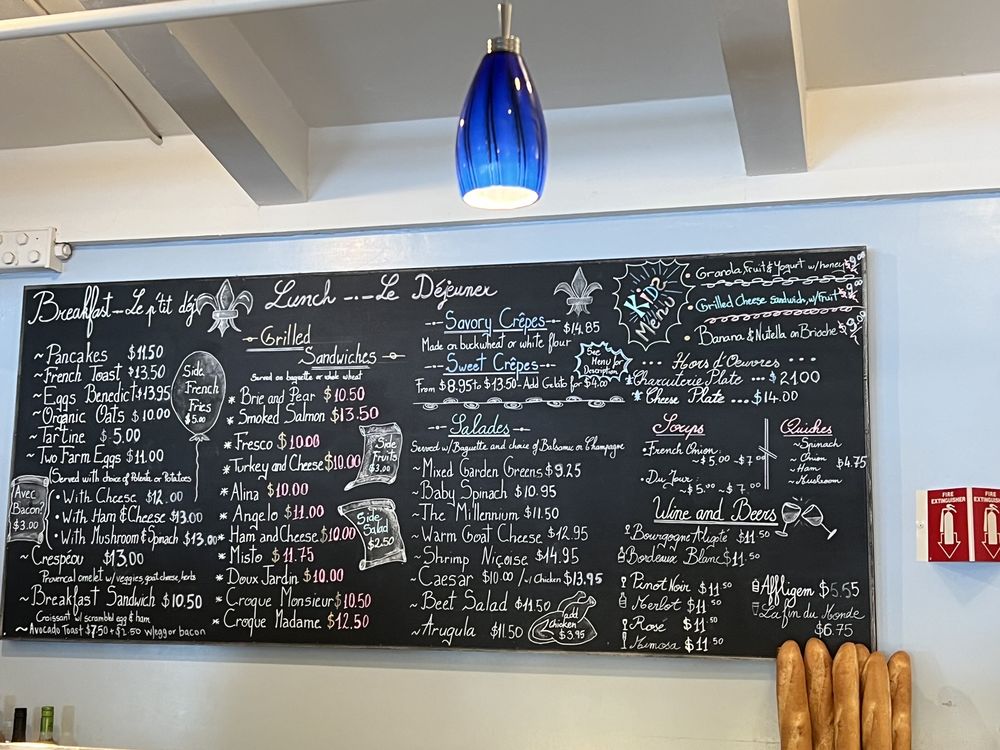 Breakfast - Le p'tit déj
~ Pancakes $11.50
~ French Toast $13.50
~ Eggs Benedict $13.95
~ Organic Oats $10.00
~ Tartine $5.00
~ Two Farm Eggs $11.00
(Served with choice of Polenta or Potatoes)
• With Cheese $12.00
• With Ham & Cheese $13.00
• With Mushroom & Spinach $13.00
~ Crespéou $13.00
Provencal omelet w/ veggies, goat cheese, herbs
~ Breakfast Sandwich $10.50
Croissant w/ scrambled egg & ham
~ Avocado Toast $7.50 + $2.50 w/egg or bacon
Avec
Bacon!
$3.00
Side
French
Fries
$5.00
Lunch -.- Le Déjeuner
Grilled
Sandwiches
Served on baguette or whole wheat
* Brie and Pear $10.50
* Smoked Salmon $13.50
* Fresco $10.00
* Turkey and Cheese $10.00
* Alina $10.00
* Angelo $11.00
* Ham and Cheese $10.00
* Misto $11.75
* Doux Jardin $10.00
* Croque Monsieur $10.50
* Croque Madame $12.50
Side
Fruits
$3.00
Side
Salad
$2.50
Savory Crêpes $14.85
Made on buckwheat or white flour
Sweet Crêpes
From $8.95 to $13.50 - Add Gelato for $4.00
See
Menu for
Description
Salades
Served w/ Baguette and choice of Balsamic or Champagne
~ Mixed Garden Greens $9.25
~ Baby Spinach $10.95
~ The Millennium $11.50
~ Warm Goat Cheese $12.95
~ Shrimp Niçoise $14.95
~ Caesar $10.00 / w/ Chicken $13.95
~ Beet Salad $11.50
~ Arugula $11.50
add
Chicken
$3.95
Kids
Menu
• Granola, Fruit & Yogurt w/ honey
• Grilled Cheese sandwich, w/ Fruit
• Banana & Nutella on Brioche
Hors d'Oeuvres
* Charcuterie Plate ... $21.00
* Cheese Plate ... $14.00
Soups
• French Onion:
~ $5.00 - $7.00
• Du Jour:
~ $5.00 - $7.00
Quiches
~ Spinach
~ Onion
~ Ham
~ Mushroom
$4.75
Wine and Beers
Bourgogne Aligoté $11.50
Bordeaux Blanc $11.50
Pinot Noir $11.50
Merlot $11.50
Rosé $11.50
Mimosa $11.50
Affligem $5.55
La fin du Monde
$6.75
FIRE
EXTINGUISHER
FIRE
EXTINGUISHER